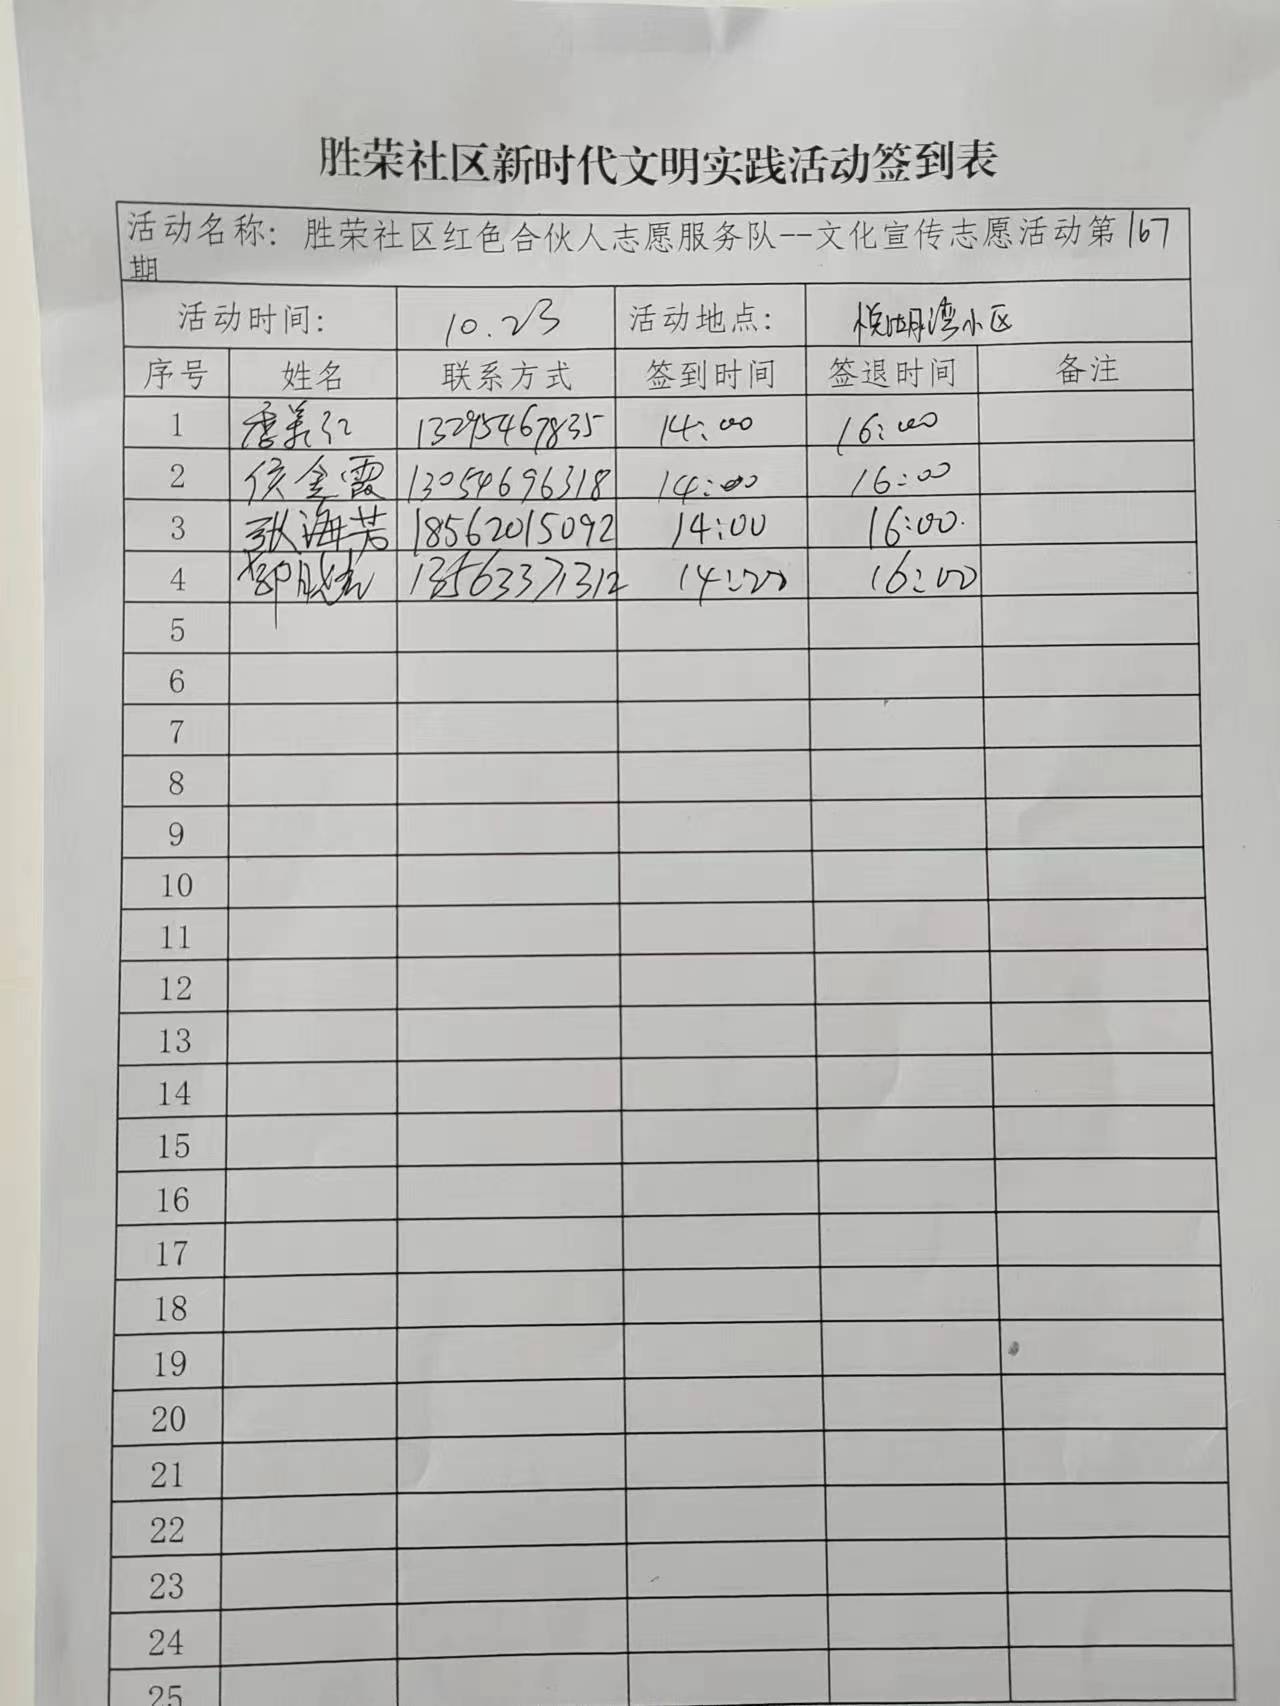 胜荣社区新时代文明实践活动签到表
活动名称：胜荣社区红色合伙人志愿服务队--文化宣传志愿活动第167
期
活动时间： 10.23 活动地点： 悦湖湾小区
序号 姓名 联系方式 签到时间 签退时间 备注
1 季美红 13295467835 14:00 16:00
2 侯金霞 13054696318 14:00 16:00
3 张海芳 18562015092 14:00 16:00
4 13563371312 14:00 16:00
5
6
7
8
9
10
11
12
13
14
15
16
17
18
19
20
21
22
23
24
25